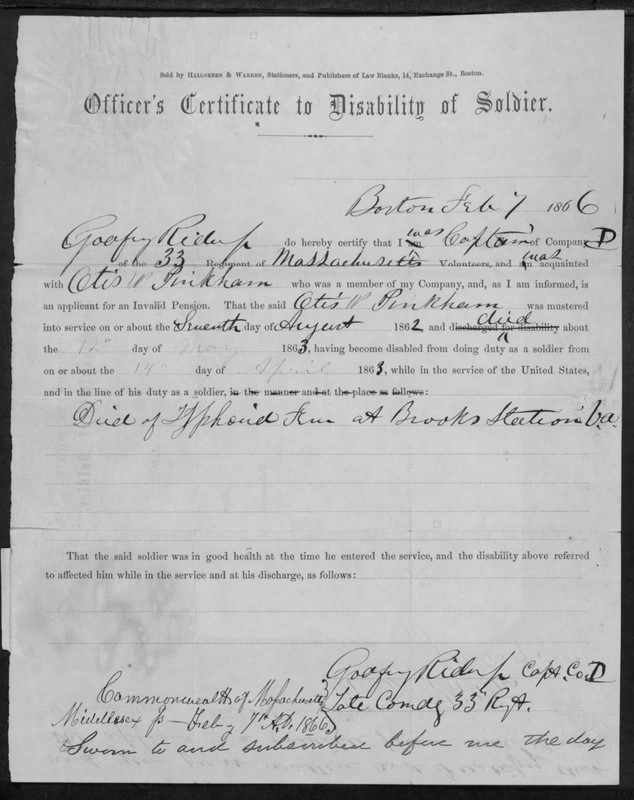 Sold by HALLGREEN & WARREN, Stationers, and Publishers of Law Blanks, 14, Exchange St., Boston.
Officer's Certificate to Disability of Soldier.
Boston Feb 7 1866
Godfrey Rider Jr do hereby certify that I am was Captain of Company D
of the 33 Regiment of Massachusetts Volunteers, and am was acquainted
with Otis W Pinkham who was a member of my Company, and, as I am informed, is
an applicant for an Invalid Pension. That the said Otis W Pinkham was mustered
into service on or about the Seventh day of August 1862, and discharged for disability died about
the 12" day of May 1863, having become disabled from doing duty as a soldier from
on or about the 14" day of April 1863, while in the service of the United States,
and in the line of his duty as a soldier, in the manner and at the place as follows:
Died of Typhoid Fever at Brooks Station Va.
That the said soldier was in good health at the time he entered the service, and the disability above referred
to affected him while in the service and at his discharge, as follows:
Godfrey Rider Jr Capt. Co. D
Late Comdg 33" Regt.
Commonwealth of Massachusetts
Middlesex ss — Feby 7th A.D. 1866
Sworn to and subscribed before me the day